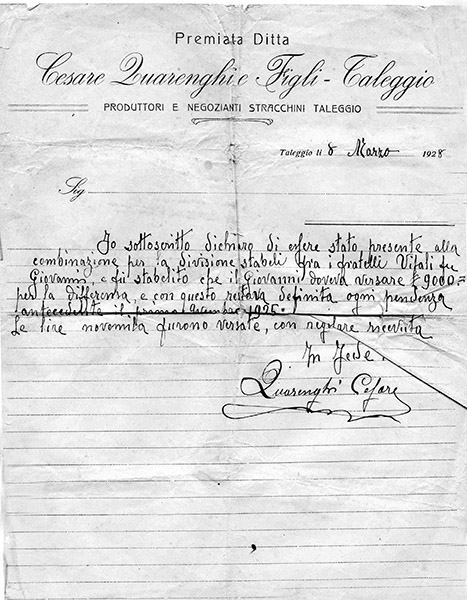 Premiata Ditta
Cesare Quarenghi e Figli - Taleggio
PRODUTTORI E NEGOZIANTI STRACCHINI TALEGGIO
Taleggio li 8 Marzo 1928
Sig.
Io sottoscritto dichiaro di essere stato presente alla
combinazione per la divisione stabeli fra i fratelli Vitali fu
Giovanni e fù stabelito che il Giovanni doveva versare £ 9000.=
per la differensa, e con questo restava definita ogni pendenza
antecedente il primo 1925.
Le lire novemita furono versate, con regolare ricevuta
In Fede.
Quarenghi Cesare